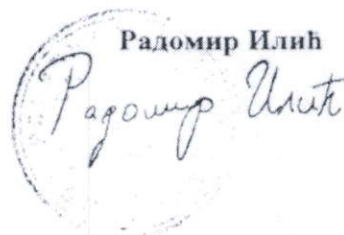 Радомир Илић
Радомир Илић